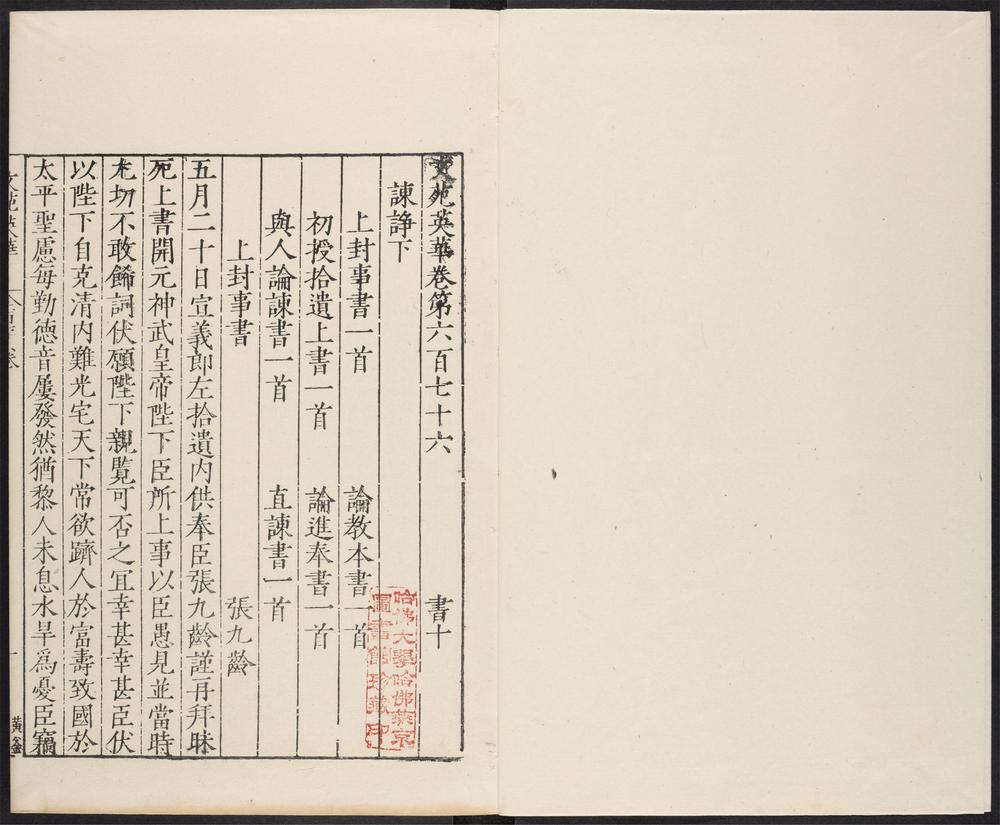 文苑英華卷第六百七十六 書十
諫諍下
上封事書一首 論教本書一首
初授拾遺上書一首 論進奉書一首
與人論諫書一首 直諫書一首
上封事書 張九齡
五月二十日宣義郎左拾遺内供奉臣張九齡謹再拜昧
死上書開元神武皇帝陛下臣所上事以臣愚見並當時
尤切不敢餙詞伏願陛下親覽可否之冝幸甚幸甚臣伏
以陛下自克清内難光宅天下常欲躋人於富壽致國於
太平聖慮每勤德音屢發然猶黎人未息水旱爲憂臣竊
哈佛大學哈佛燕京
圖書館珍藏印